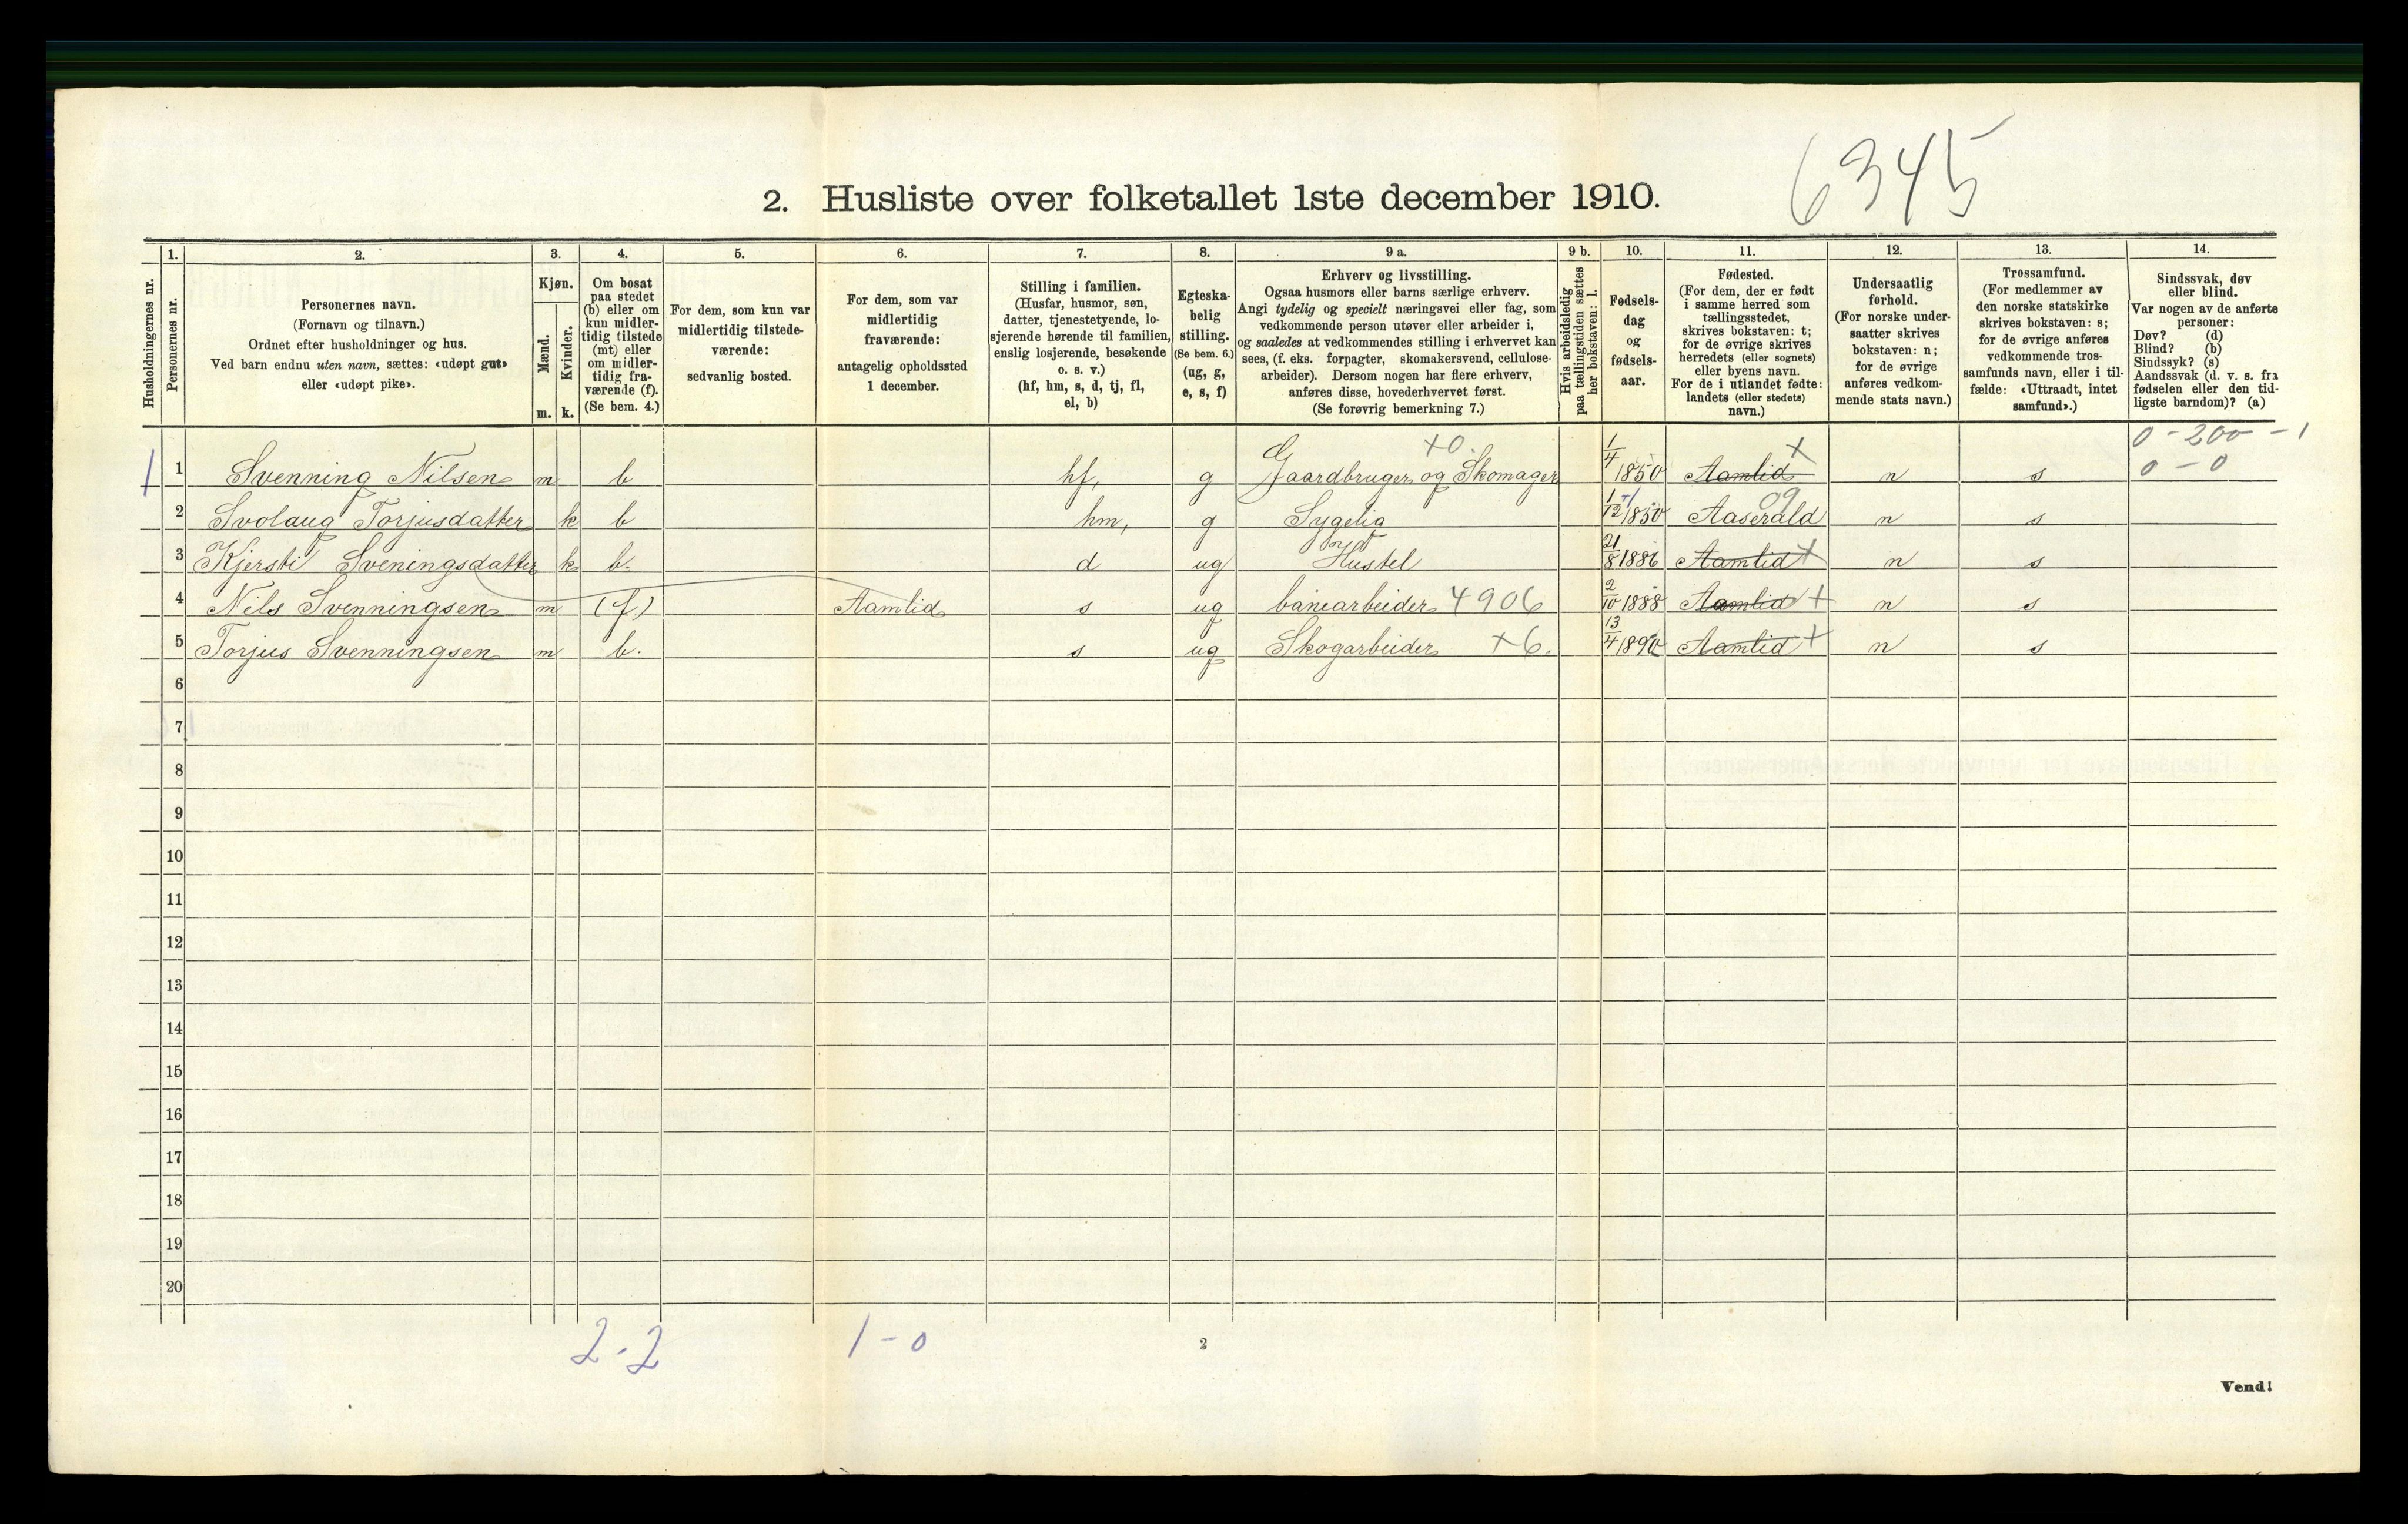 6345
2. Husliste over folketallet 1ste december 1910.
Husholdningernes nr.
1.
Personernes nr.
2.
Personernes navn.
(Fornavn og tilnavn.)
Ordnet efter husholdninger og hus.
Ved barn endnu uten navn, sættes: «udøpt gut»
eller «udøpt pike».
3.
Kjøn.
Mænd.
Kvinder.
m. k.
4.
Om bosat
paa stedet
(b) eller om
kun midler-
tidig tilstede
(mt) eller
om midler-
tidig fra-
værende (f).
(Se bem. 4.)
5.
For dem, som kun var
midlertidig tilstede-
værende:
sedvanlig bosted.
6.
For dem, som var
midlertidig
fraværende:
antagelig opholdssted
1 december.
7.
Stilling i familien.
(Husfar, husmor, søn,
datter, tjenestetyende, lo-
sjerende hørende til familien,
enslig losjerende, besøkende
o. s. v.)
(hf, hm, s, d, tj, fl,
el, b)
8.
Egteska-
belig
stilling.
(Se bem. 6.)
(ug, g,
e, s, f)
9 a.
Erhverv og livsstilling.
Ogsaa husmors eller barns særlige erhverv.
Angi tydelig og specielt næringsvei eller fag, som
vedkommende person utøver eller arbeider i,
og saaledes at vedkommendes stilling i erhvervet kan
sees, (f. eks. forpagter, skomakersvend, cellulose-
arbeider). Dersom nogen har flere erhverv,
anføres disse, hovederhvervet først.
(Se forøvrig bemerkning 7.)
9 b.
Hvis arbeidsledig
paa tællingstiden sættes
her bokstaven: l.
10.
Fødsels-
dag
og
fødsels-
aar.
11.
Fødested.
(For dem, der er født
i samme herred som
tællingsstedet,
skrives bokstaven: t;
for de øvrige skrives
herredets (eller sognets)
eller byens navn.
For de i utlandet fødte:
landets (eller stedets)
navn.)
12.
Undersaatlig
forhold.
(For norske under-
saatter skrives
bokstaven: n;
for de øvrige
anføres vedkom-
mende stats navn.)
13.
Trossamfund.
(For medlemmer av
den norske statskirke
skrives bokstaven: s;
for de øvrige anføres
vedkommende tros-
samfunds navn, eller i til-
fælde: «Uttraadt, intet
samfund».)
14.
Sindssvak, døv
eller blind.
Var nogen av de anførte
personer:
Døv? (d)
Blind? (b)
Sindssyk? (s)
Aandssvak (d. v. s. fra
fødselen eller den tid-
ligste barndom)? (a)
x0. x 0-200-1
1 1 Svenning Nilsen m b hf, g Gaardbruger og Skomager 1/4 1850 Aamlid n s 0-0
09
2 Svolaug Torjusdatter k b hm, g Sygelig 1/12 1850 Aaserald n s
3 Kjersti Sveningsdatter k b. d ug Hustel 21/8 1886 Aamlid + n s
4 Nils Svenningsen m (f) Aamlid s ug banearbeider 4906 2/10 1888 Aamlid + n s
5 Torjus Svenningsen m b. s ug Skogarbeider x6. 13/4 1890 Aamlid + n s
6
7
8
9
10
11
12
13
14
15
16
17
18
19
20
2-2 1-0
2
Vend!